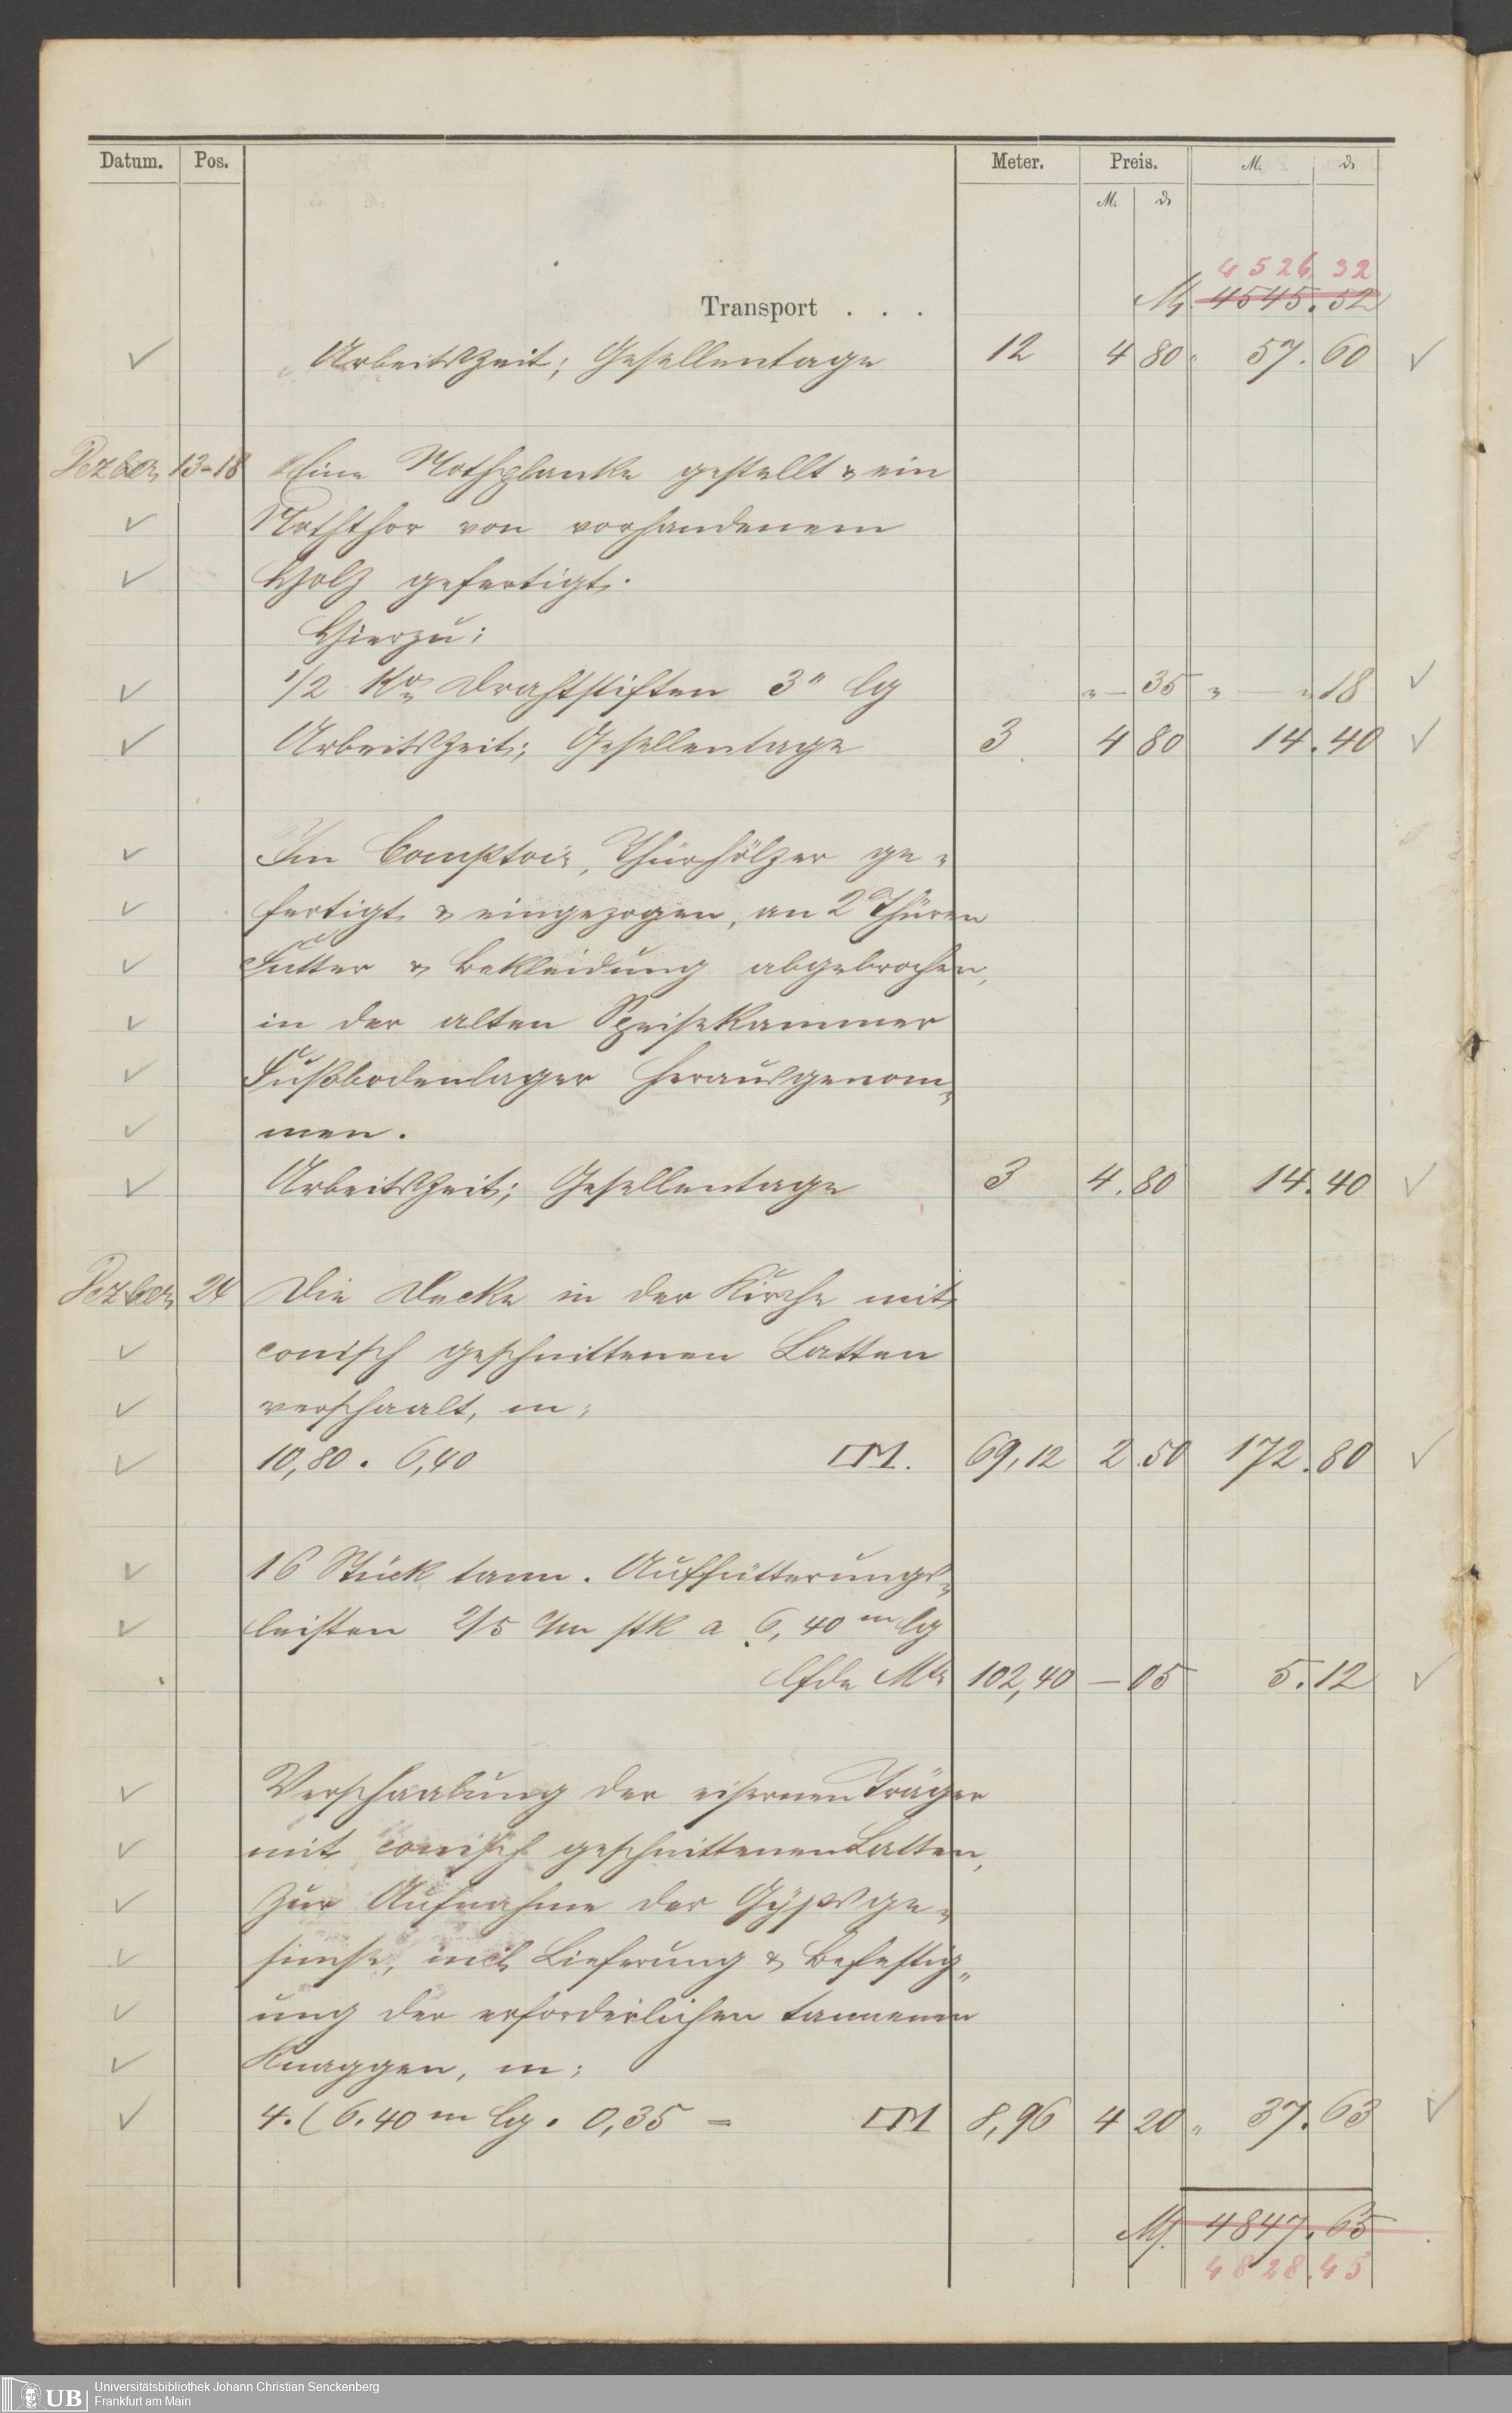 Datum. Pos. Meter. Preis. M. ₰
M. ₰
4526 32
Transport . . . M. 4545. 52
Arbeitszeit; Gesellentage 12 4 80 57. 60
Dezber. 13-18 Eine Nothplanke gestellt & ein
Noththor von vorhandenem
Holz gefertigt.
Hierzu:
1/2 Ko. Drahtstiften 3" lg „ — 35 „ — „ 18
Arbeitszeit; Gesellentage 3 4 80 14. 40
Im Comptoir, Thürhölzer ge-
fertigt & eingezogen, an 2 Thüren
Futter & Bekleidung abgebrochen,
in der alten Speisekammer
Fußbodenlager herausgenom-
men.
Arbeitszeit; Gesellentage 3 4. 80 14. 40
Dezber. 24 Die Decke in der Kirche mit
conisch geschnittenen Latten
verschaalt, m:
10,80 . 6,40 □M. 69,12 2. 50 172. 80
16 Stück tann. Auffütterungs-
leisten 2/5 c/m stk a 6,40 m lg
lfde Mtr 102,40 — 05 5. 12
Verschaalung der eisernen Träger
mit conisch geschnittenen Latten,
zur Aufnahme der Gypsge-
simse, incl. Lieferung & Befestig-
ung der erforderlichen tannenen
Knaggen, m:
4. (6.40 m lg. 0,35 = □M 8,96 4 20 „ 37. 63
M. 4847. 65
4828. 45
UB Universitätsbibliothek Johann Christian Senckenberg
Frankfurt am Main